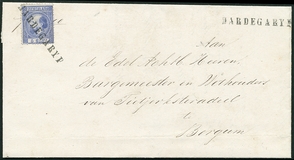 HARDEGARYP
HARDEGARYP
Aan
de Edel Achtb Heeren
Burgemeester en Wethouders
van Tietjerksteradeel
te
Bergum